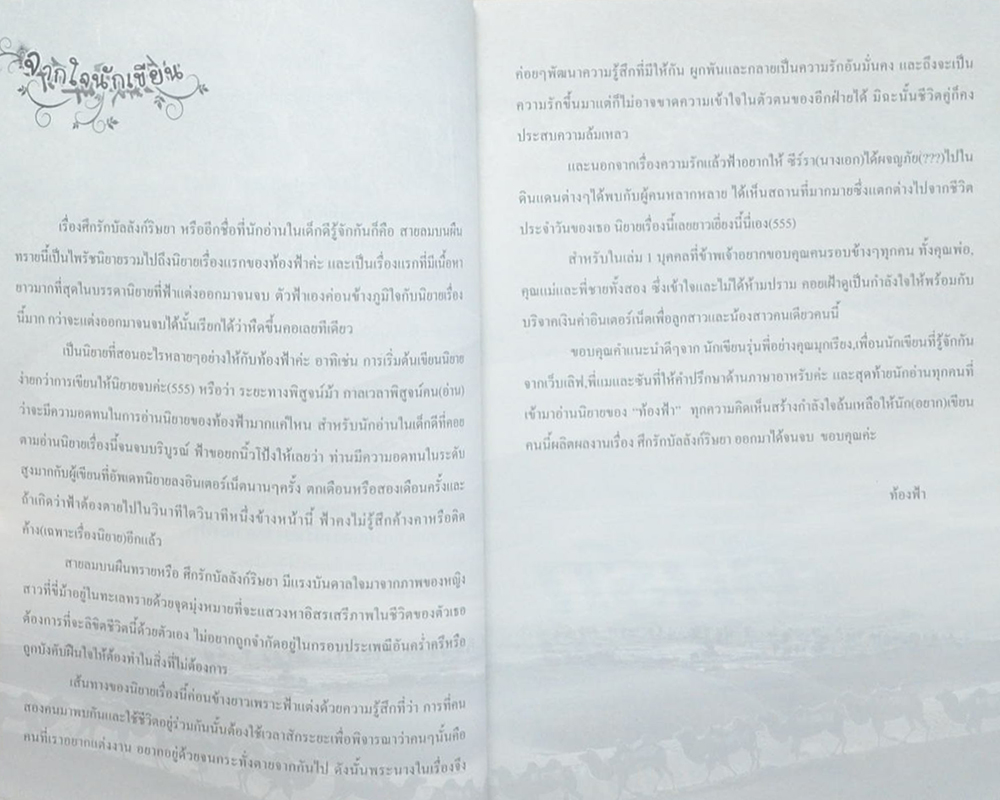 จากใจนักเขียน
เรื่องศึกรักบัลลังก์ริษยา หรืออีกชื่อที่นักอ่านในเด็กดีรู้จักกันก็คือ สายลมบนผืน
ทรายนี้เป็นไพรัชนิยายรวมไปถึงนิยายเรื่องแรกของท้องฟ้าค่ะ และเป็นเรื่องแรกที่มีเนื้อหา
ยาวมากที่สุดในบรรดานิยายที่ฟ้าแต่งออกมาจนจบ ตัวฟ้าเองค่อนข้างภูมิใจกับนิยายเรื่อง
นี้มาก กว่าจะแต่งออกมาจนจบได้นั้นเรียกได้ว่าหืดขึ้นคอเลยทีเดียว
เป็นนิยายที่สอนอะไรหลายๆอย่างให้กับท้องฟ้าค่ะ อาทิเช่น การเริ่มต้นเขียนนิยาย
ง่ายกว่าการเขียนให้นิยายจบค่ะ(555) หรือว่า ระยะทางพิสูจน์ม้า กาลเวลาพิสูจน์คน(อ่าน)
ว่าจะมีความอดทนในการอ่านนิยายของท้องฟ้ามากแค่ไหน สำหรับนักอ่านในเด็กดีที่คอย
ตามอ่านนิยายเรื่องนี้จนจบบริบูรณ์ ฟ้าขอยกนิ้วโป้งให้เลยว่า ท่านมีความอดทนในระดับ
สูงมากกับผู้เขียนที่อัพเดทนิยายลงอินเตอร์เน็ตนานๆครั้ง ตกเดือนหรือสองเดือนครั้งและ
ถ้าเกิดว่าฟ้าต้องตายไปในวินาทีใดวินาทีหนึ่งข้างหน้านี้ ฟ้าคงไม่รู้สึกค้างคาหรือติด
ค้าง(เฉพาะเรื่องนิยาย)อีกแล้ว
สายลมบนผืนทรายหรือ ศึกรักบัลลังก์ริษยา มีแรงบันดาลใจมาจากภาพของหญิง
สาวที่ขี่ม้าอยู่ในทะเลทรายด้วยจุดมุ่งหมายที่จะแสวงหาอิสรเสรีภาพในชีวิตของตัวเธอ
ต้องการที่จะลิขิตชีวิตนี้ด้วยตัวเอง ไม่อยากถูกจำกัดอยู่ในกรอบประเพณีอันคร่ำครึหรือ
ถูกบังคับฝืนใจให้ต้องทำในสิ่งที่ไม่ต้องการ
เส้นทางของนิยายเรื่องนี้ค่อนข้างยาวเพราะฟ้าแต่งด้วยความรู้สึกที่ว่า การที่คน
สองคนมาพบกันและใช้ชีวิตอยู่ร่วมกันนั้นต้องใช้เวลาสักระยะเพื่อพิจารณาว่าคนๆนั้นคือ
คนที่เราอยากแต่งงาน อยากอยู่ด้วยจนกระทั่งตายจากกันไป ดังนั้นพระนางในเรื่องจึง
ค่อยๆพัฒนาความรู้สึกที่มีให้กัน ผูกพันและกลายเป็นความรักอันมั่นคง และถึงจะเป็น
ความรักขึ้นมาแต่ก็ไม่อาจขาดความเข้าใจในตัวตนของอีกฝ่ายได้ มิฉะนั้นชีวิตคู่ก็คง
ประสบความล้มเหลว
และนอกจากเรื่องความรักแล้วฟ้าอยากให้ ชีร์รา(นางเอก)ได้ผจญภัย(???)ไปใน
ดินแดนต่างๆได้พบกับผู้คนหลากหลาย ได้เห็นสถานที่มากมายซึ่งแตกต่างไปจากชีวิต
ประจำวันของเธอ นิยายเรื่องนี้เลยยาวเยี่ยงนี้นี่เอง(555)
สำหรับในเล่ม 1 บุคคลที่ข้าพเจ้าอยากขอบคุณคนรอบข้างๆทุกคน ทั้งคุณพ่อ,
คุณแม่และพี่ชายทั้งสอง ซึ่งเข้าใจและไม่ได้ห้ามปราม คอยเฝ้าดูเป็นกำลังใจให้พร้อมกับ
บริจาคเงินค่าอินเตอร์เน็ตเพื่อลูกสาวและน้องสาวคนเดียวคนนี้
ขอบคุณคำแนะนำดีๆจาก นักเขียนรุ่นพี่อย่างคุณมุกเรียง,เพื่อนนักเขียนที่รู้จักกัน
จากเว็บเลิฟ,พี่แมและซันที่ให้คำปรึกษาด้านภาษาอาหรับค่ะ และสุดท้ายนักอ่านทุกคนที่
เข้ามาอ่านนิยายของ "ท้องฟ้า" ทุกความคิดเห็นสร้างกำลังใจล้นเหลือให้นัก(อยาก)เขียน
คนนี้ผลิตผลงานเรื่อง ศึกรักบัลลังก์ริษยา ออกมาได้จนจบ ขอบคุณค่ะ
ท้องฟ้า